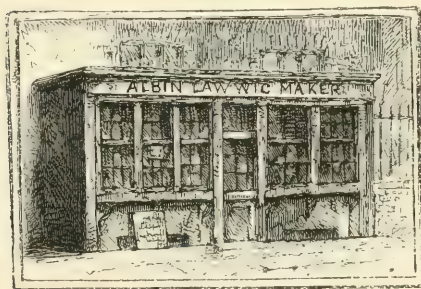 ALBIN LAW WIG MAKER